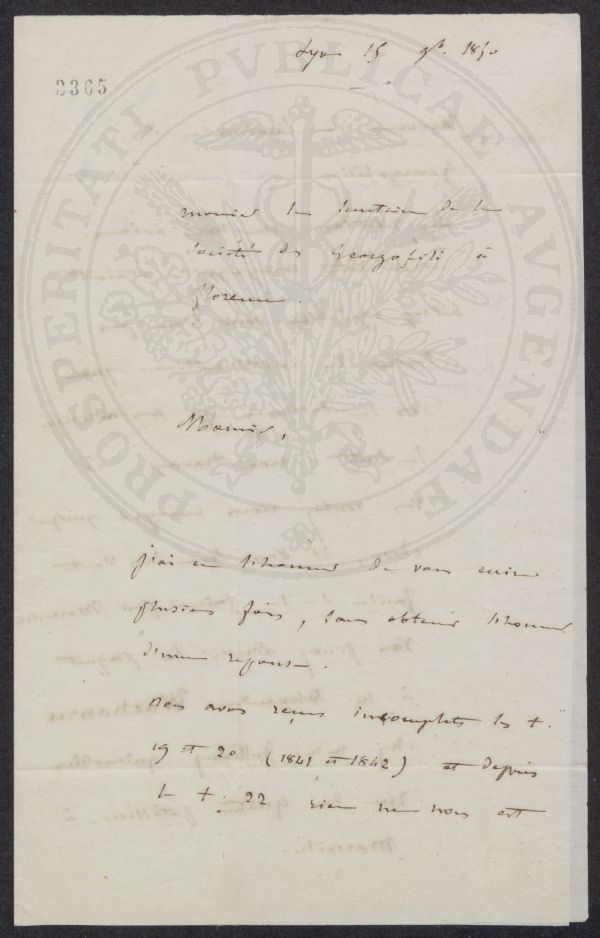 Lyon 15 9b. 1850
2365
PROSPERITATI PVBLICAE AVGENDAE
monsieur le secretaire de la
société des Georgofili à
florence.
Monsieur,
j'ai eu l'honneur de vous ecrire
plusieurs fois, sans obtenir l'honneur
d'une reponse.
nous avons reçus incomplets les t.
19 et 20 (1841 et 1842) et depuis
le t. 22 rien ne nous est